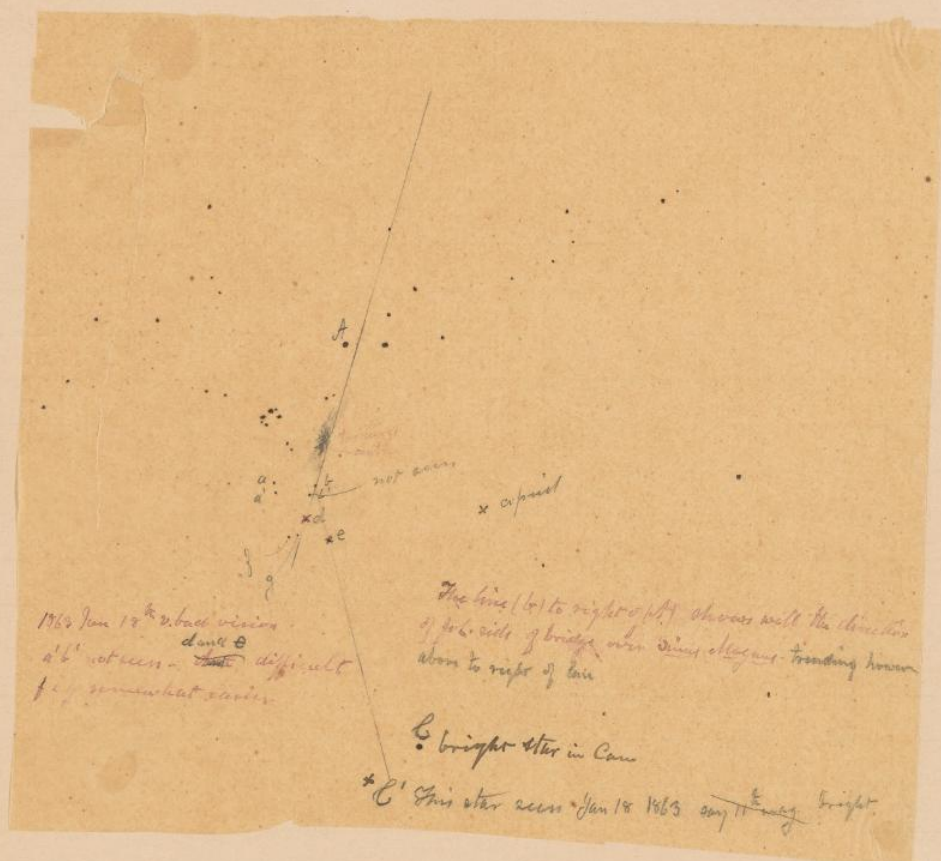 A
a
a'
b
b'
not seen
d
e
a point
f
g
1863 Jan 18th v. bad vision
d and e
a'b' not seen - difficult
f & g somewhat easier
The line (b) to right of (A) shows well the direction
of side of bridge over Sinus Magnus - trending however
above to right of line
C
bright star in
C' This star seen Jan 18 1863 say 11th mag bright